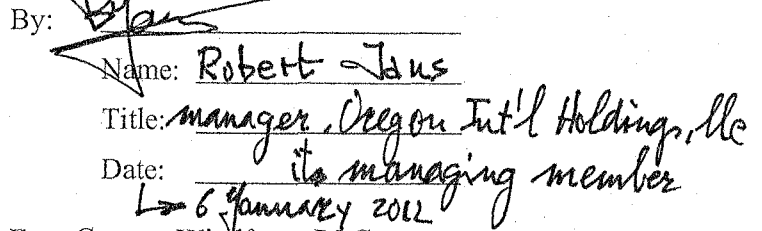 By:
Name: Robert Jans
Title: manager, Oregon Int'l Holdings, llc
its managing member
Date:
6 January 2012